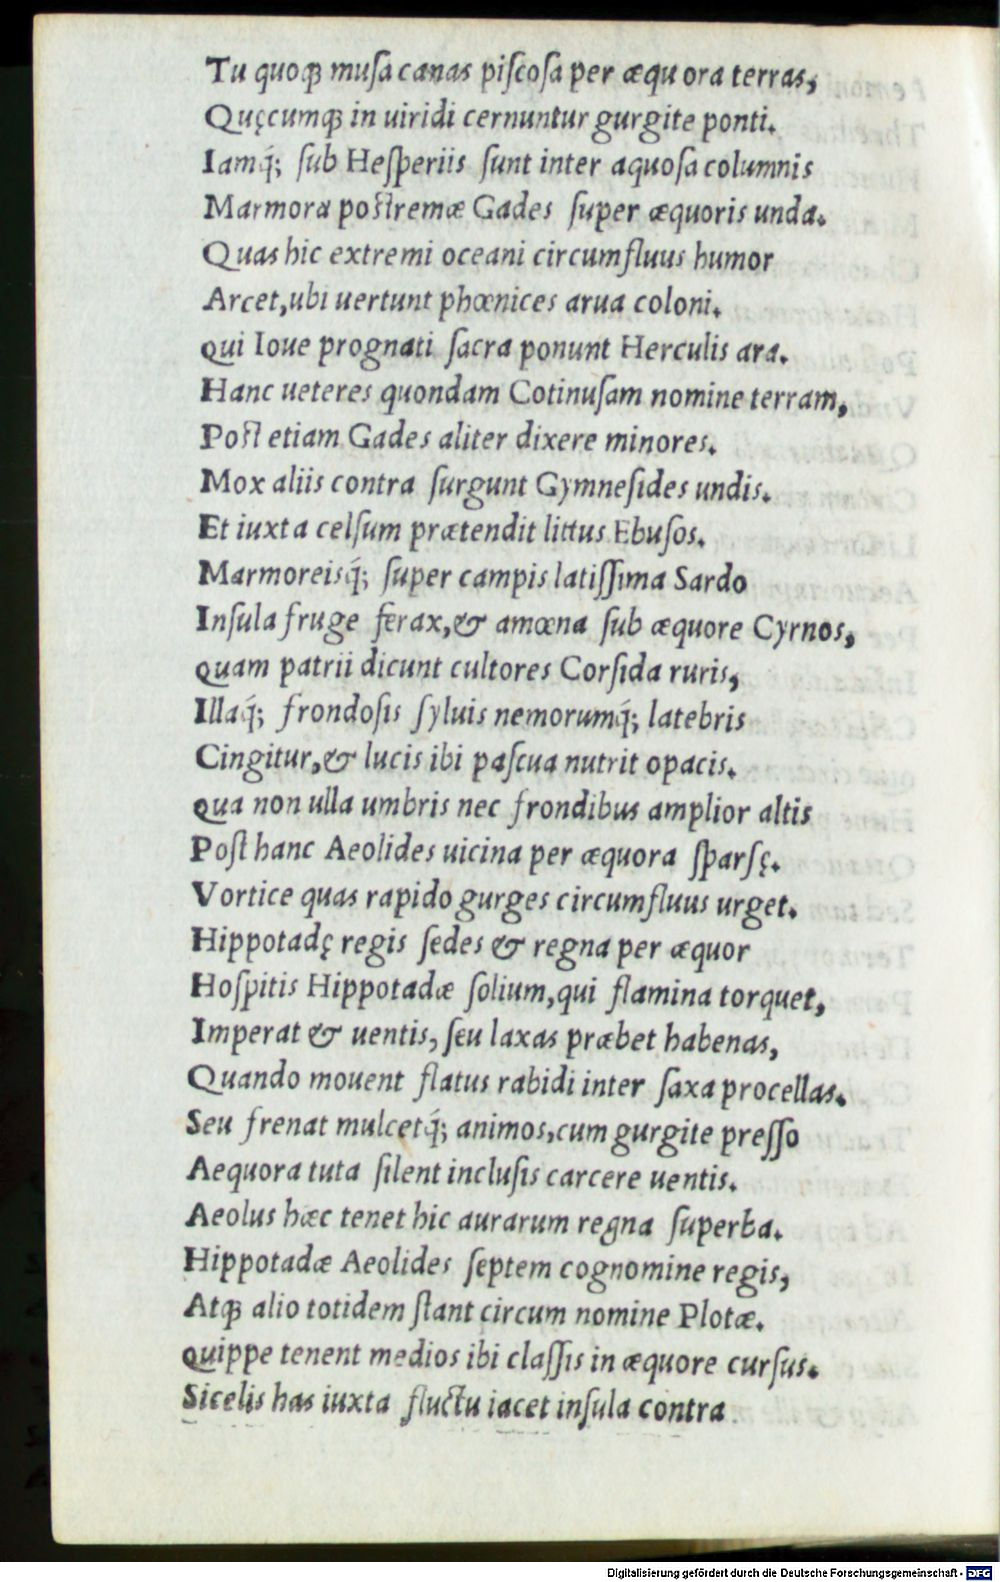 Tu quoqꝫ muſa canas piſcoſa per æqu ora terras,
Quęcumqꝫ in uiridi cernuntur gurgite ponti.
Iamq́; ſub Heſperiis ſunt inter aquoſa columnis
Marmora poſtremæ Gades ſuper æquoris unda.
Quas hic extremi oceani circumfluus humor
Arcet,ubi uertunt phœnices arua coloni.
qui Ioue prognati ſacra ponunt Herculis ara.
Hanc ueteres quondam Cotinuſam nomine terram,
Poſt etiam Gades aliter dixere minores.
Mox aliis contra ſurgunt Gymneſides undis.
Et iuxta celſum prætendit littus Ebuſos.
Marmoreisq́; ſuper campis latiſſima Sardo
Inſula fruge ferax,& amœna ſub æquore Cyrnos,
quam patrii dicunt cultores Corſida ruris,
Illaq́; frondoſis ſyluis nemorumq́; latebris
Cingitur,& lucis ibi paſcua nutrit opacis.
qua non ulla umbris nec frondibus amplior altis
Poſt hanc Aeolides uicina per æquora ſparſę.
Vortice quas rapido gurges circumfluus urget.
Hippotadę regis ſedes & regna per æquor
Hoſpitis Hippotadæ ſolium,qui flamina torquet,
Imperat & uentis, ſeu laxas præbet habenas,
Quando mouent flatus rabidi inter ſaxa procellas.
Seu frenat mulcetq́; animos,cum gurgite preſſo
Aequora tuta ſilent incluſis carcere uentis.
Aeolus hæc tenet hic aurarum regna ſuperba.
Hippotadæ Aeolides ſeptem cognomine regis,
Atqꝫ alio totidem ſtant circum nomine Plotæ.
quippe tenent medios ibi claſſis in æquore curſus.
Sicelis has iuxta fluctu iacet inſula contra
Digitalisierung gefördert durch die Deutsche Forschungsgemeinschaft - DFG